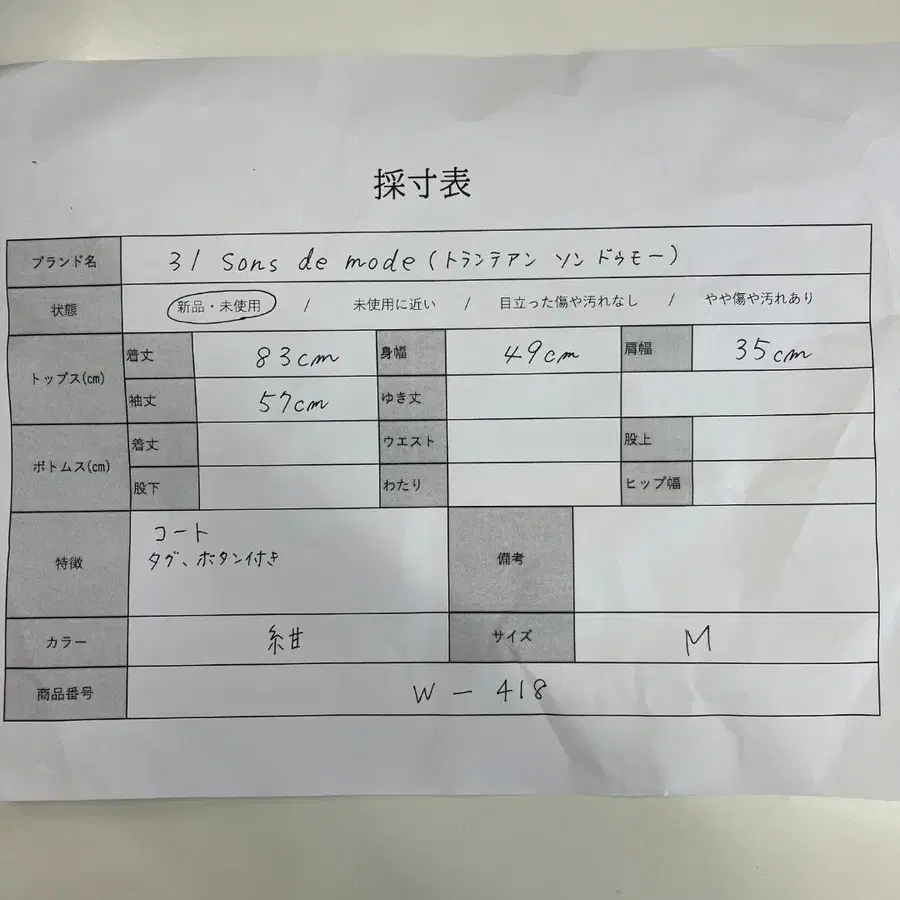 採寸表
ブランド名 31 Sons de mode (トランテアン ソン ドゥモー)
状態 新品・未使用 / 未使用に近い / 目立った傷や汚れなし / やや傷や汚れあり
トップス(cm) 着丈 83cm 身幅 49cm 肩幅 35cm
袖丈 57cm ゆき丈
ボトムス(cm) 着丈 ウエスト 股上
股下 わたり ヒップ幅
特徴 コート 備考
タグ、ボタン付き
カラー 紺 サイズ M
商品番号 W - 418